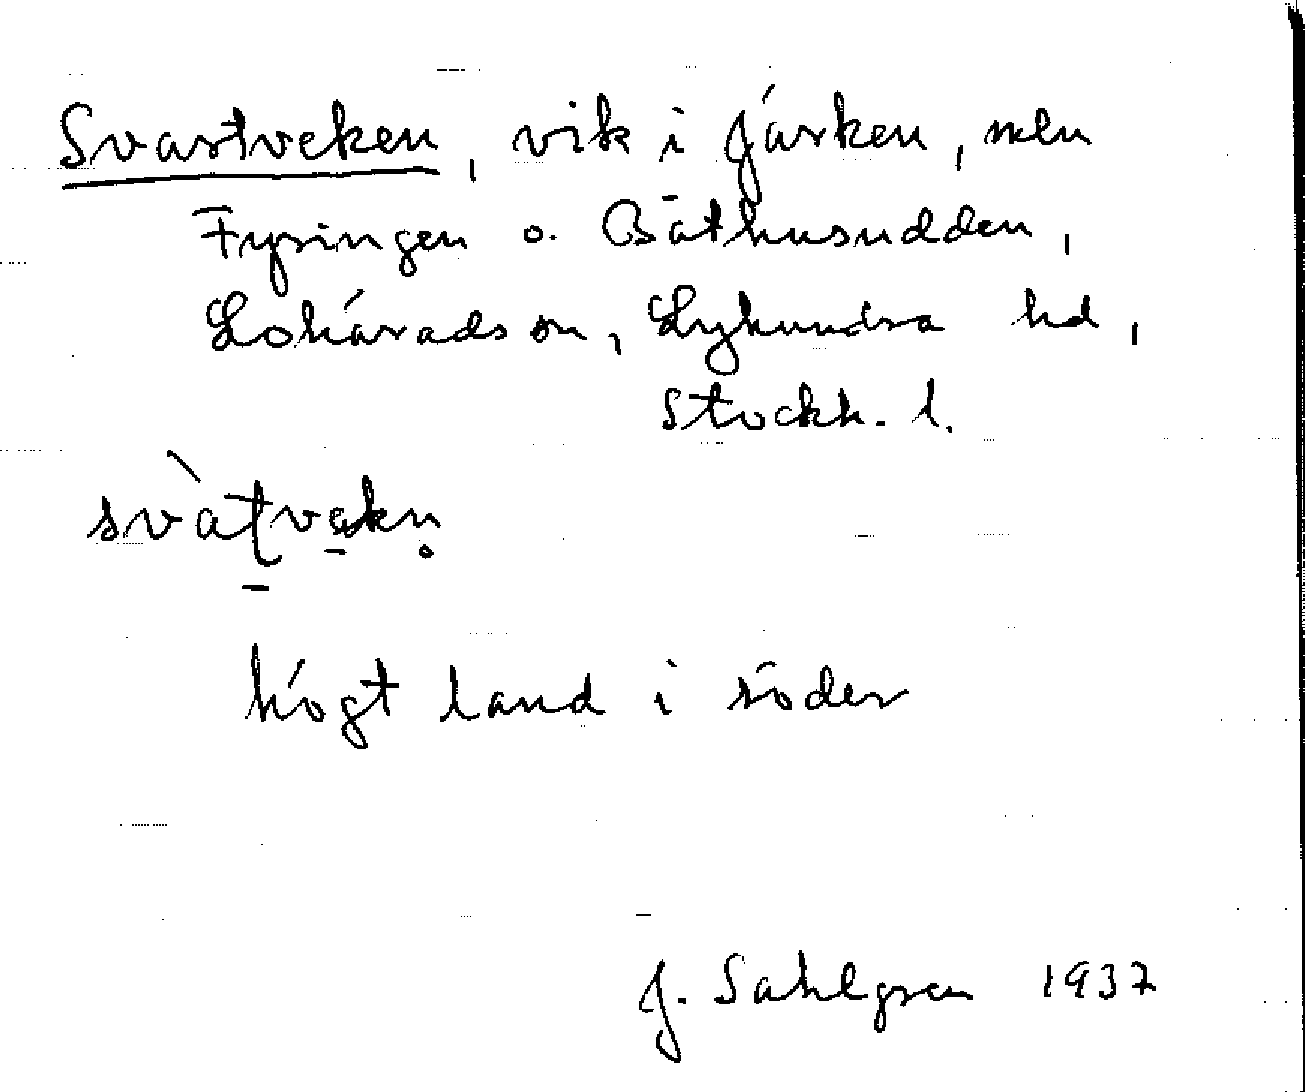 Svartveken, vik i Järken, meln
Fysingen o. Båthusudden,
Lohärads sn, Lyhundra hd,
Stockh. l.
svàtvakn̥
högt land i söder
J. Sahlgren 1937